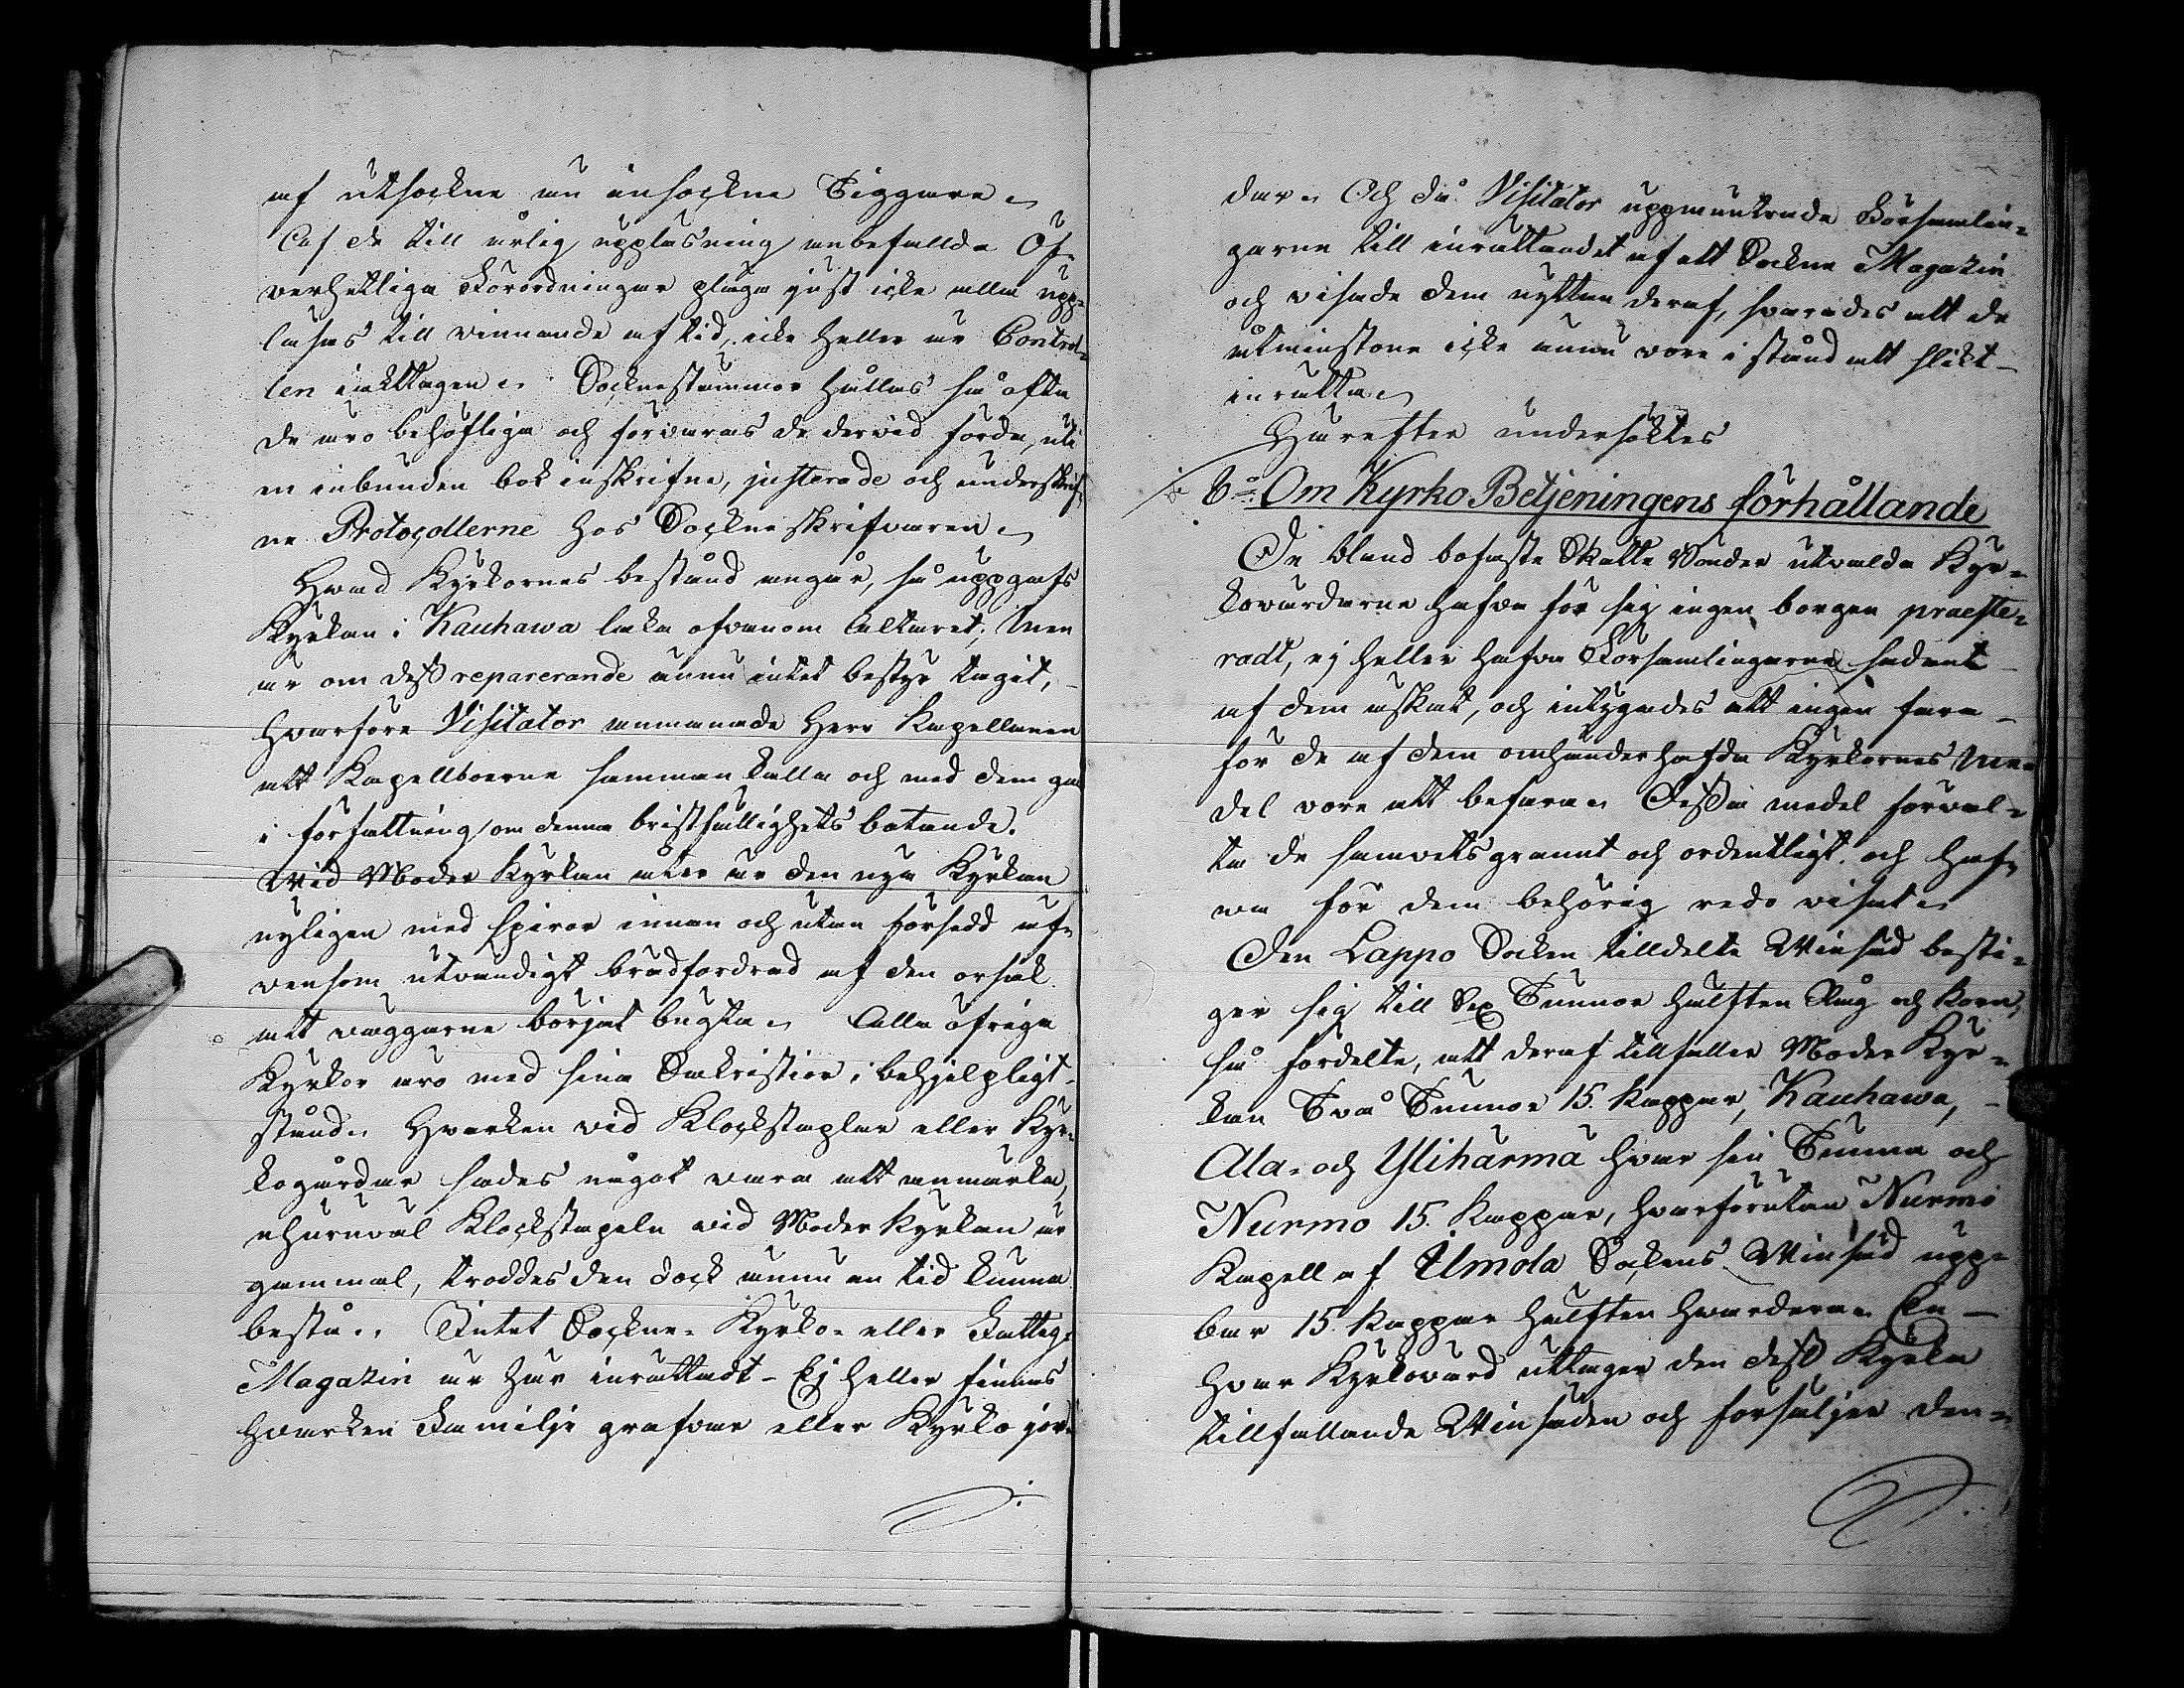 af utsockne än insockne Tiggare.
Af de till årlig uppläsning anbefallda Öf-
verhetliga Förordningar pläga just icke alla upp-
läsas till vinnande af tid, icke heller är Control-
len iakttagen. Sockne stämmor hållas så ofta
de äro behöfliga och förvaras de dervid förda, uti
en inbunden bok inskrifne, justerade och underskrif-
ne Protocollerne hos Sockneskrifvaren.
Hvad Kyrkornes bestånd angår, så uppgafs
Kyrkan i Kauhawa läka ofvanom Altaret, men
är om dess reparerande ännu intet bestyr tagit,
hvarföre Visitator anmanade Herr Kapellanen
att Kapellboerne samman kalla och med dem gå
i författning om denna bristfällighets botande.
Vid Moder Kyrkan åter är den nya Kyrkan
nyligen med spiror innan och utan försedd äf-
vensom utvändigt brädfordrad af den orsak
att väggarne börjat bugta. Alla öfriga
Kyrkor äro med sina Sakristior i behjelpligt
stånd. Hvarken vid Klockstaplar eller Kyr-
kogårdar sades något vara att anmärka,
ehuruväl Klockstapeln vid Moder Kyrkan är
gammal, troddes den dock ännu en tid kunna
bestå. Intet Sockne- Kyrko- eller Fattig-
Magazin är här inrättadt - Ej heller finnas
hvarken Familje grafvar eller Kyrko jor-
dar. Och då Visitator uppmuntrade Församlin-
garne till inrättandet af ett Sockne Magazin
och visade dem nyttan deraf, svarades att de
åtminstone icke ännu vore i stånd att slikt
inrätta.
Härefter undersöktes
6:o Om Kyrko Betjeningens förhållande
De bland bofaste Skatte Bönder utvalda Kyr-
kovärdarne hafva för sig ingen borgen præste-
radt, ej heller hafva Församlingarne sådant
af dem äskat, och intygades att ingen fara
för de af dem omhänderhafda Kyrkornes me-
del vore att befara. Dessa medel förval-
ta de samvetsgrannt och ordentligt och haf-
va för dem behörig redo visat.
Den Lappo Socken tilldelte Vinsäd besti-
ger sig till Sex Tunnor hälften Råg och Korn,
så fördelte, att deraf tillfaller Moder Kyr-
kan Två Tunnor 15. Kappar, Kauhawa,
Ala- och Ylihärmä hvar sin Tunna och
Nurmo 15. Kappar, hvarförutan Nurmo
Kapell af Ilmola Sockens Vinsäd upp-
bär 15. Kappar hälften hvardera. En
hvar Kyrkovärd uttager den dess Kyrka
tillfallande Vinsäden och försäljer den-